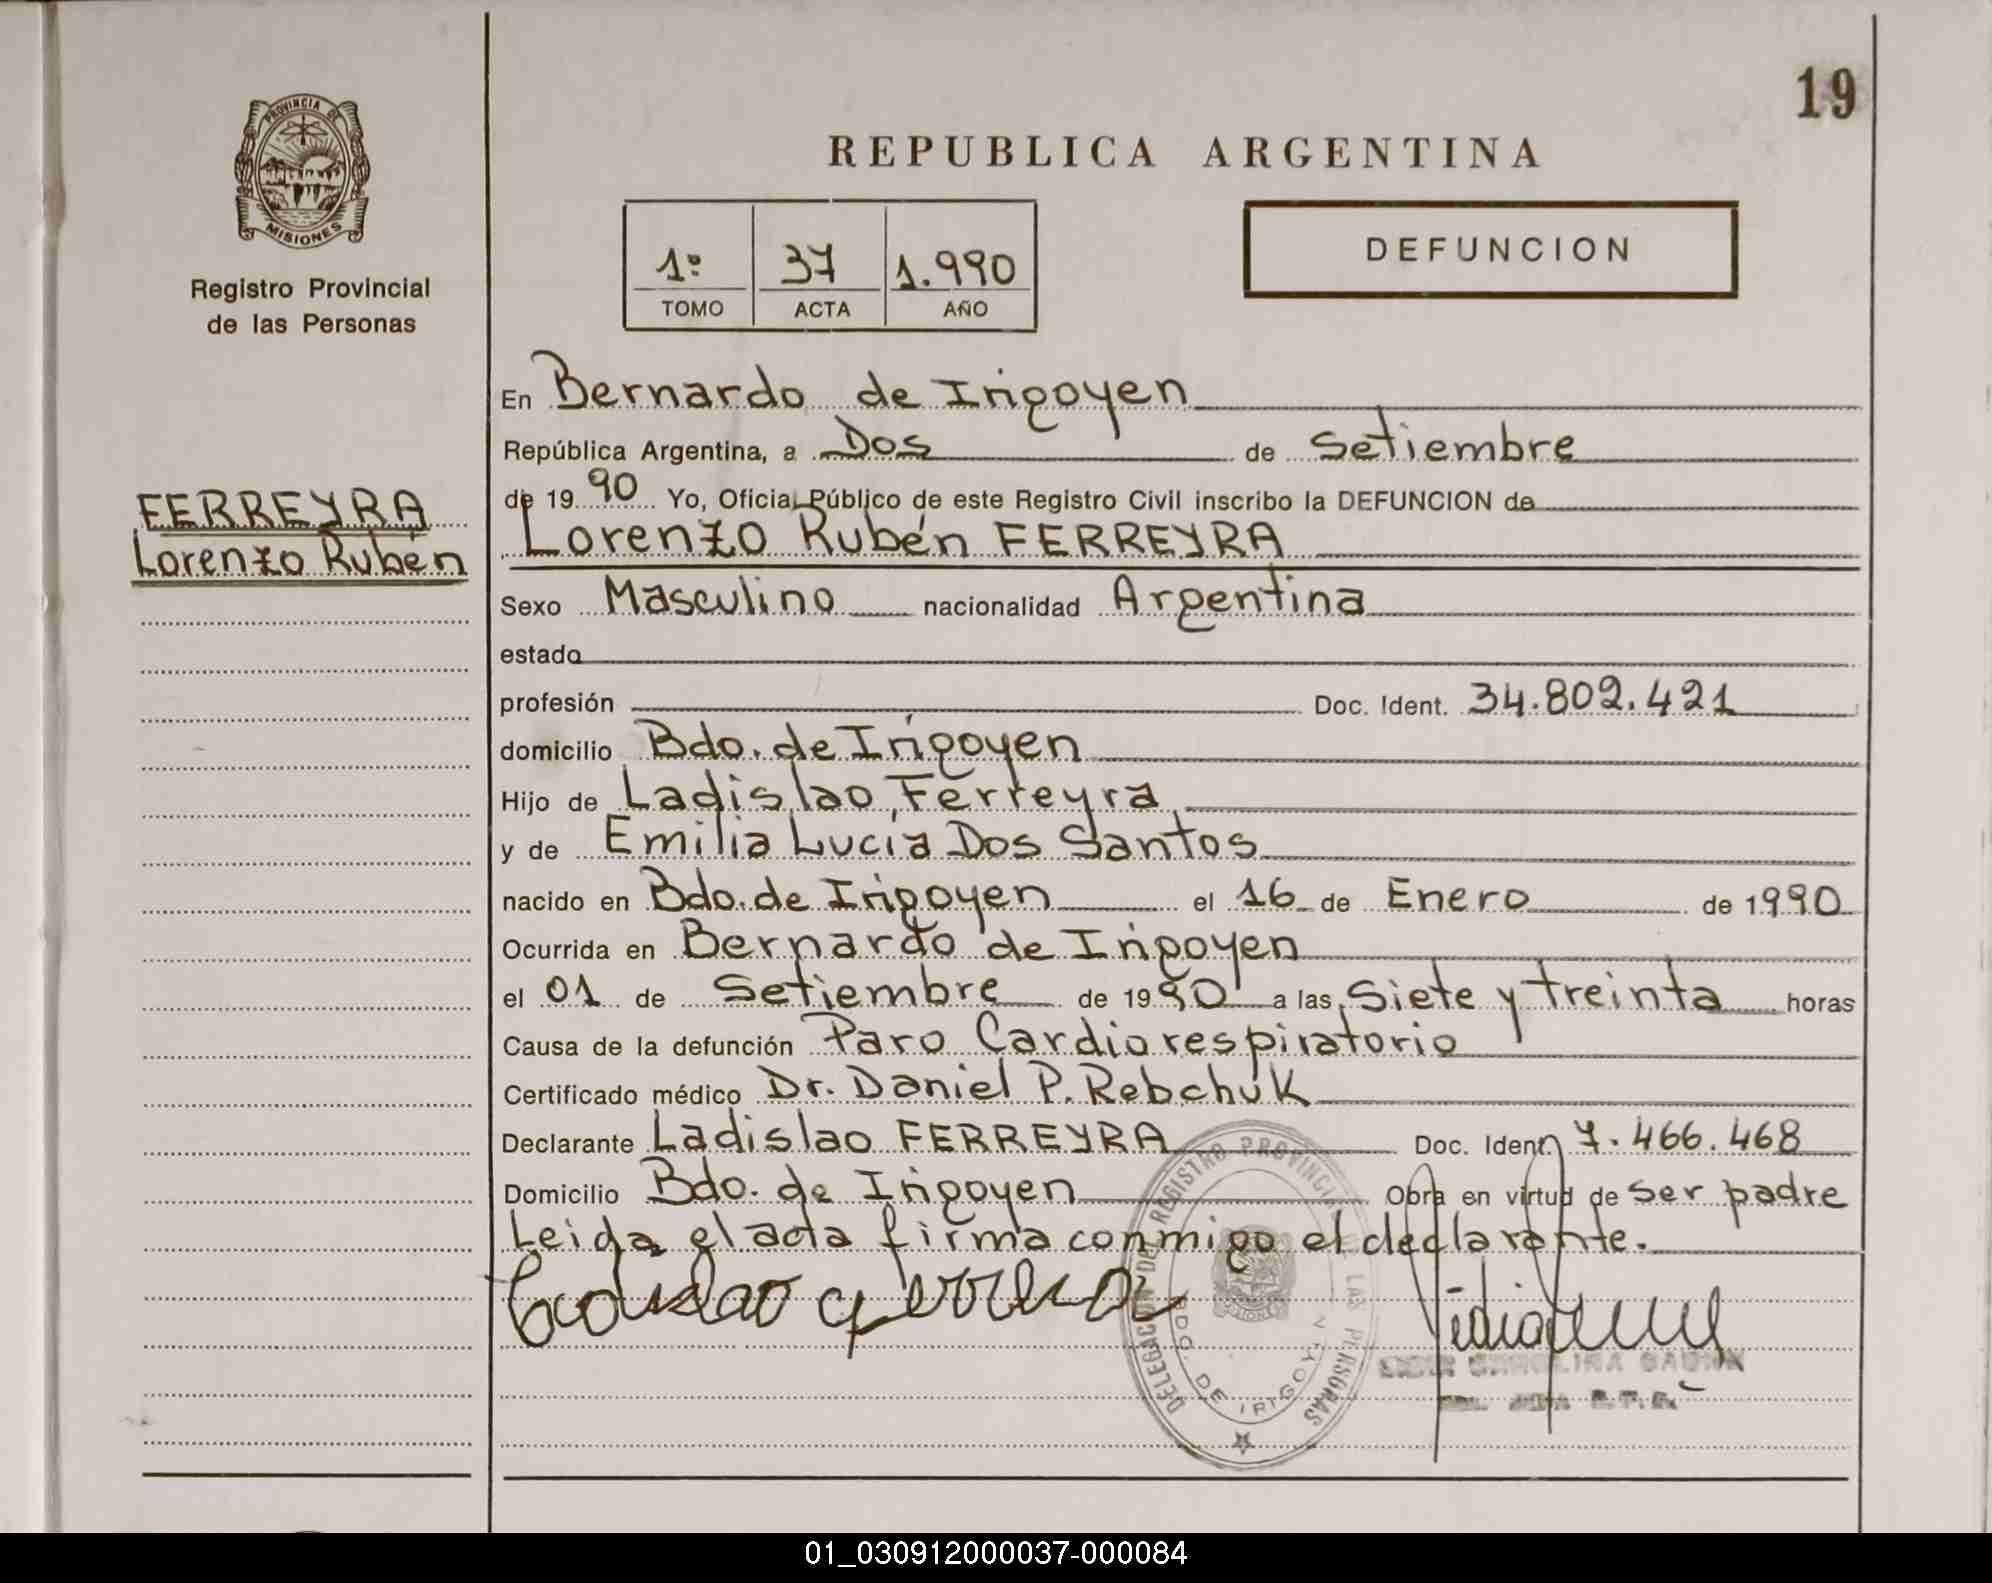 19
PROVINCIA DE
MISIONES
Registro Provincial
de las Personas
REPUBLICA ARGENTINA
1º 37 1.990
TOMO ACTA AÑO
DEFUNCION
En Bernardo de Irigoyen
República Argentina, a Dos de Setiembre
de 19 90 Yo, Oficial Público de este Registro Civil inscribo la DEFUNCION de
FERREYRA
Lorenzo Rubén
Lorenzo Rubén FERREYRA
Sexo Masculino nacionalidad Argentina
estado
profesión Doc. Ident. 34.802.421
domicilio Bdo. de Irigoyen
Hijo de Ladislao Ferreyra
y de Emilia Lucía Dos Santos
nacido en Bdo. de Irigoyen el 16 de Enero de 1990
Ocurrida en Bernardo de Irigoyen
el 01 de Setiembre de 1990 a las Siete y treinta horas
Causa de la defunción Paro Cardiorespiratorio
Certificado médico Dr. Daniel P. Rebchuk
Declarante Ladislao FERREYRA Doc. Ident. 7.466.468
Domicilio Bdo. de Irigoyen Obra en virtud de ser padre
Leida el acta firma conmigo el declarante.
Ladislao Ferreira
DELEGACION DEL REGISTRO PROVINCIAL DE LAS PERSONAS
BDO. DE IRIGOYEN
CAROLINA
01_030912000037-000084